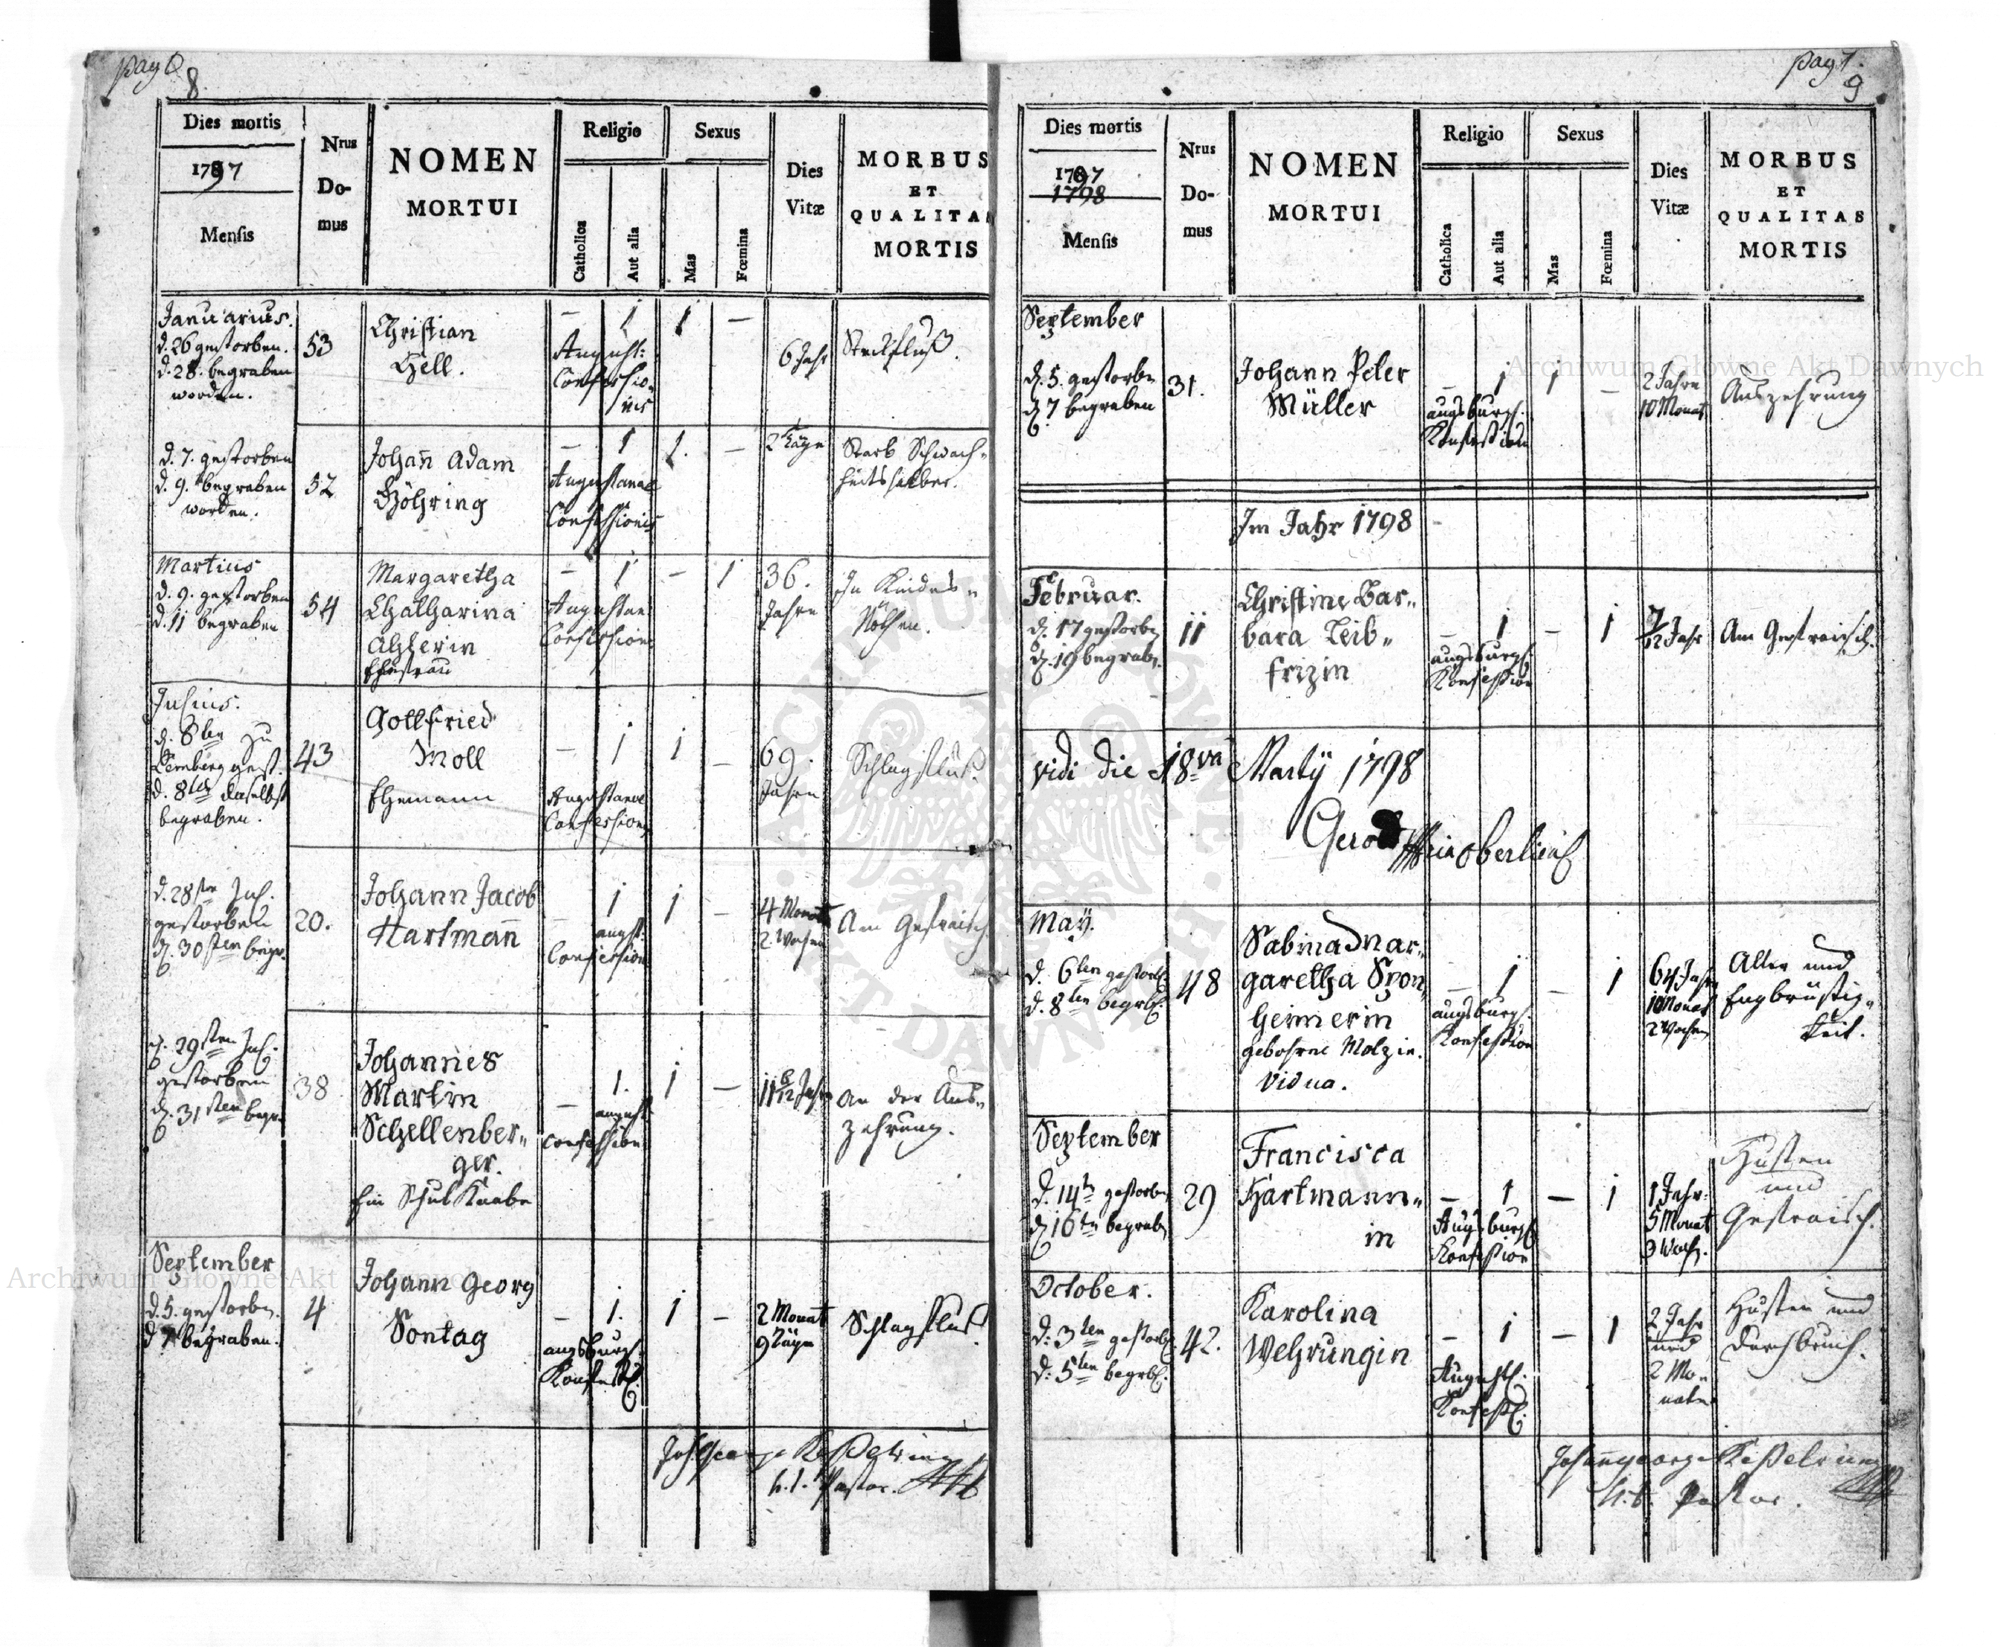 pag
8
Dies mortis
1797
Mensis
Nrus
Do-
mus
NOMEN
MORTUI
Religio
Catholica
Aut alia
Sexus
Mas
Fœmina
Dies
Vitæ
MORBUS
ET
QUALITAS
MORTIS
Januarius.
d. 26 gestorben.
d. 28. begraben
worden.
53
Christian
Hell.
– 1 1 –
August:
Confessio-
nis
6 Jahr
Steckfluß.
d. 7. gestorben
d. 9. begraben
worden.
52
Johañ Adam
Göhring
– 1 1. –
Augustanae
Confessionis
2 Täge
Starb Schwach-
heitshalber.
Martius
d. 9. gestorben
d. 11 begraben
54
Margaretha
Chatharina
Ahlerin
Ehefrau
– 1 – 1
Augustan:
Confession:
36.
Jahre
In Kindes-
Nöthen.
Julius.
d. 8ten zu
Lemberg gest.
d. 8ten daselbst
begraben.
43
Gottfried
Moll
Ehemann
– 1 1 –
Augustanae
Confession:
69.
Jahre
Schlagfluß.
d. 28sten Jul.
gestorben
d. 30sten begr.
20.
Johann Jacob
Hartmañ
– 1 1 –
augst.
Confession
4 Monat
2. Wochen
Am Gefraisch
d. 29sten Jul.
gestorben
d. 31sten begr.
38
Johannes
Martin
Schellenber-
ger.
Ein Schul Knabe
– 1. 1 –
augst.
Confession
11 6/12 Jahr
an der Aus-
zehrung.
September
d. 5. gestorben.
d 7 begraben.
4
Johann Georg
Sontag
– 1. 1 –
augsburg.
Konfess.
2 Monat
9 Täge
Schlagfluß.
Joh George Keßelring
h. t. Pastor.
pag 7.
9
Dies mortis
1797
1798
Mensis
Nrus
Do-
mus
NOMEN
MORTUI
Religio
Catholica
Aut alia
Sexus
Mas
Fœmina
Dies
Vitæ
MORBUS
ET
QUALITAS
MORTIS
September
d. 5. gestorben
d 7 begraben
31.
Johann Peter
Müller
– 1 1 –
augsburg.
Konfession
2 Jahre
10 Monat
Auszehrung
Im Jahr 1798
Februar.
d. 17 gestorben
d. 19 begrab.
11
Christine Bar-
bara Leib-
frizin
– 1 – 1
augsburg.
Konfession
7/12 Jahr
Am Gefraisch.
vidi die 18va Martÿ 1798
May.
d. 6ten gestorb.
d. 8ten begrb.
48
Sabina Mar-
garetha Spon-
heimerin
gebohrne Molzin.
Vidua.
– 1 – 1
augsburg.
Konfession
64 Jahr
10 Monat
2 Wochen
Alter und
Engbrüstig-
keit.
September
d. 14tn gestorb.
d 16tn begrab.
29
Francisca
Hartmann-
in
– 1 – 1
Augsburg.
Konfession
1 Jahr.
5 Monat
3 Woch.
Husten
und
Gefraisch.
October.
d: 3ten gestorb.
d: 5ten begrb.
42.
Karolina
Wehrungin
– 1 – 1
Augustl.
Konfess.
2 Jahr
und
2 Mo-
nate
Husten und
Durchbruch.
Johanngeorge Keßelring
h. t. Pastor.
Archiwum Główne Akt Dawnych
Archiwum Główne Akt Dawnych
ARCHIWUM GŁÓWNE AKT DAWNYCH